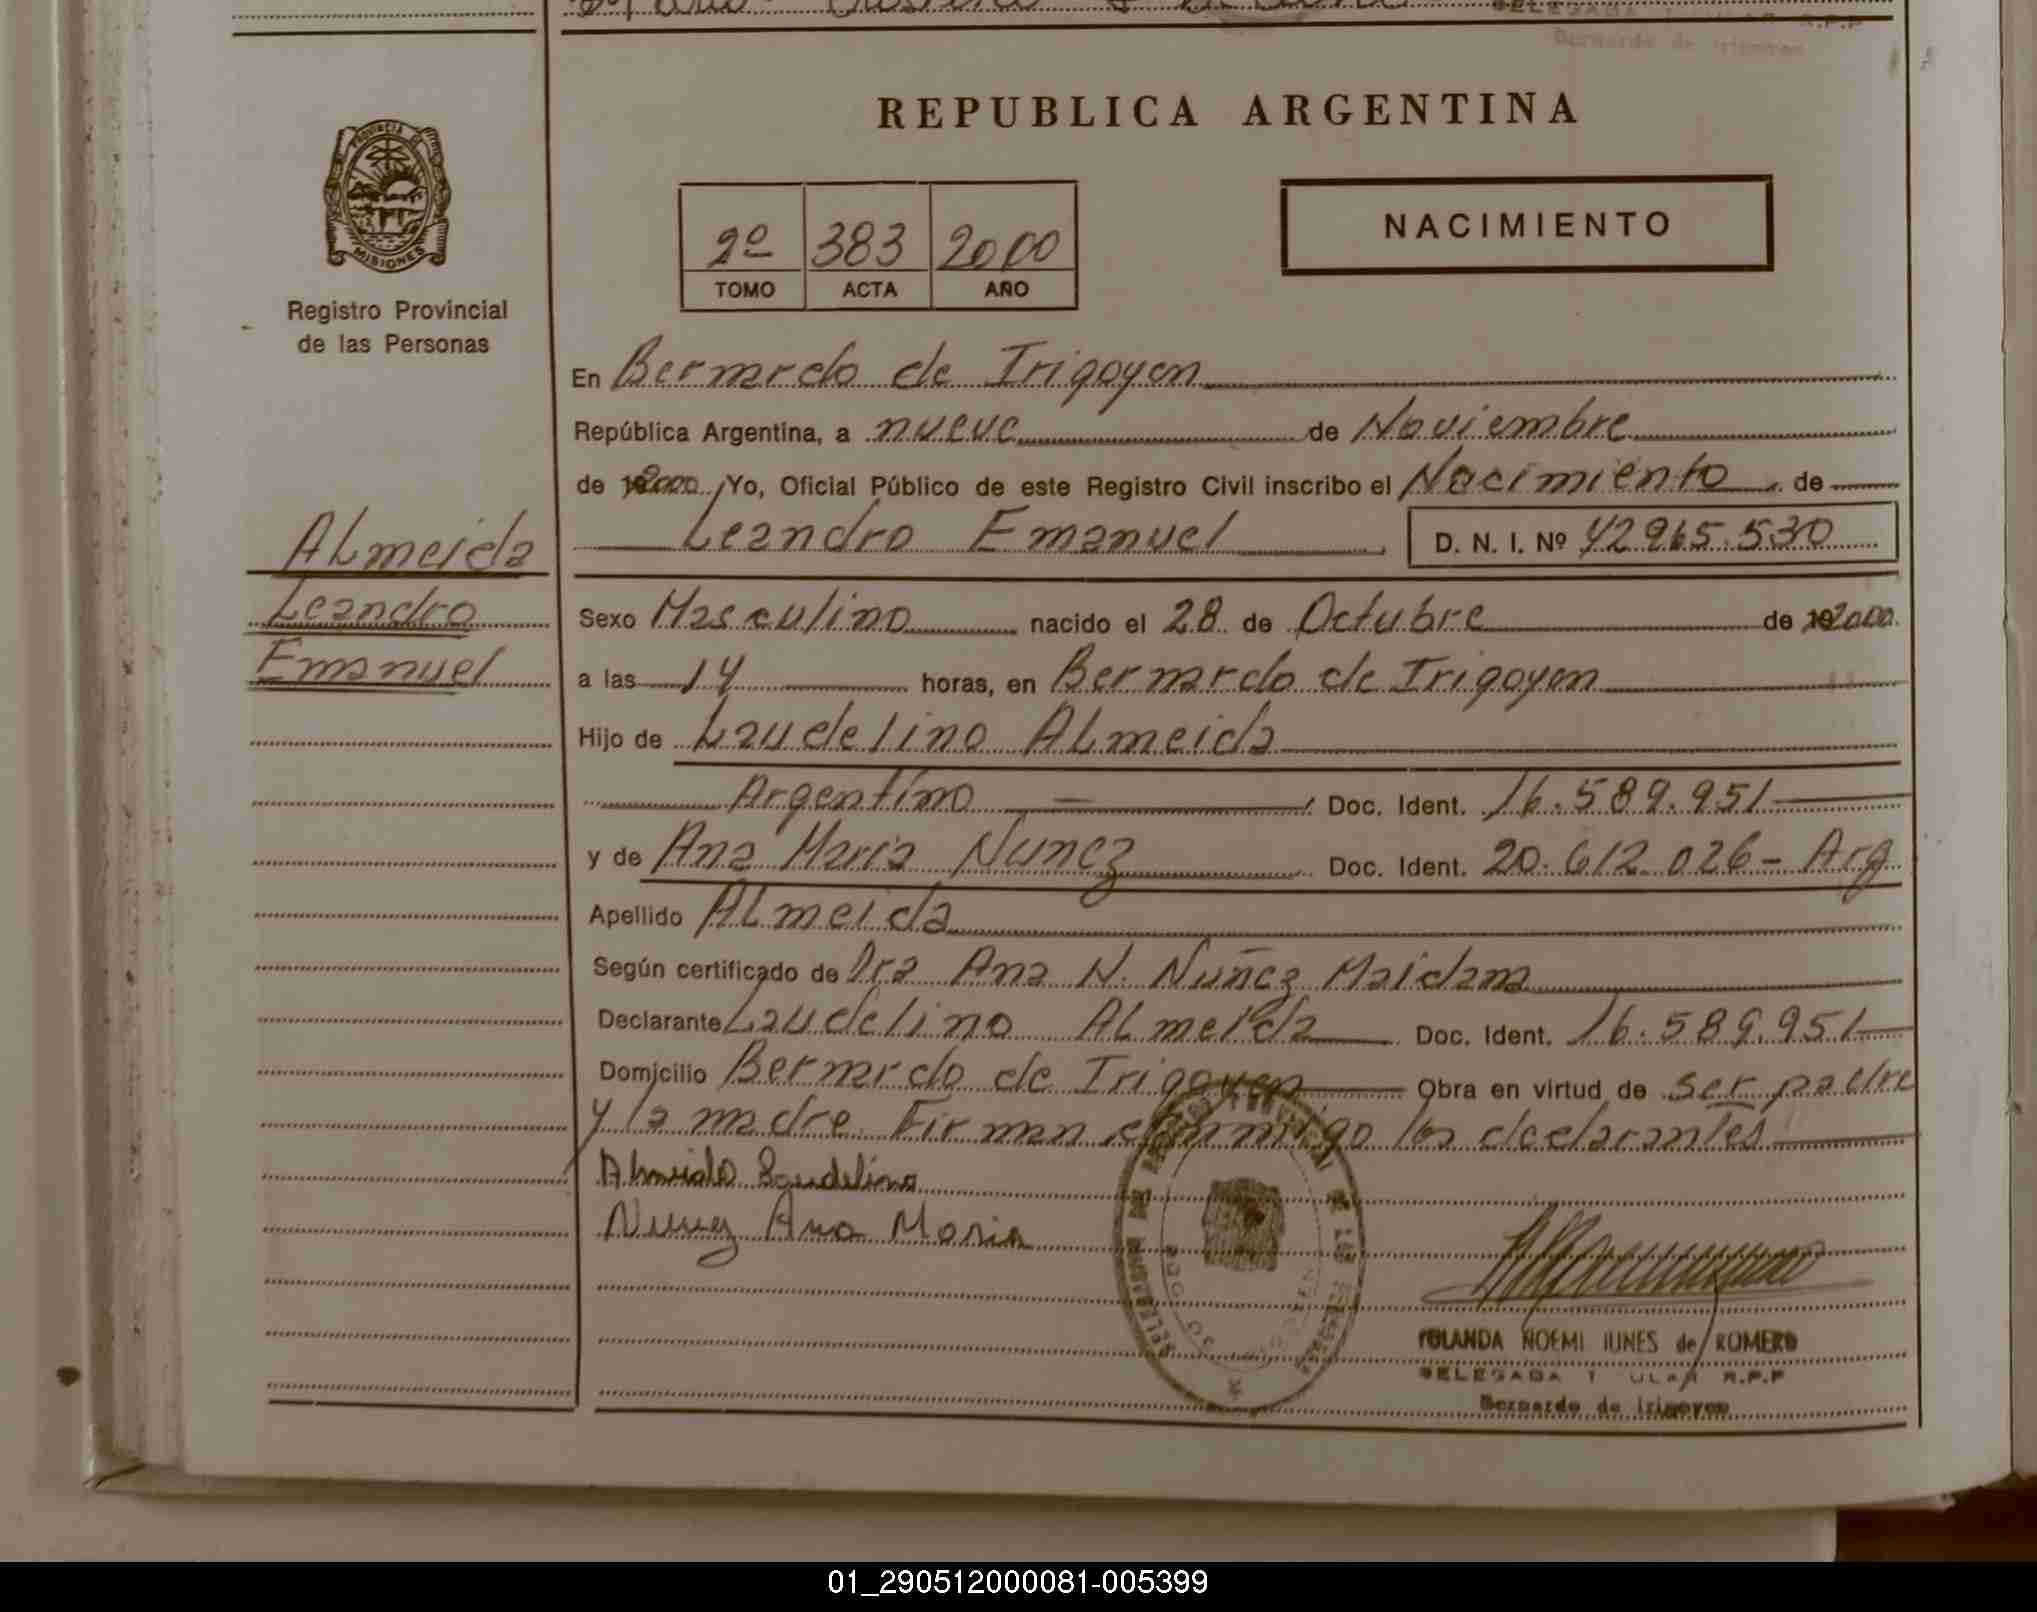 REPUBLICA ARGENTINA
PROVINCIA DE
MISIONES
Registro Provincial
de las Personas
2º 383 2000
TOMO ACTA AÑO
NACIMIENTO
En Bernardo de Irigoyen
República Argentina, a nueve de Noviembre
de 2000, Yo, Oficial Público de este Registro Civil inscribo el Nacimiento de
Leandro Emanuel D. N. I. Nº 42965.530
Almeida
Leandro
Emanuel
Sexo Masculino nacido el 28 de Octubre de 2000
a las 14 horas, en Bernardo de Irigoyen
Hijo de Laudelino Almeida
Argentino Doc. Ident. 16.589.951
y de Ana Maria Nunez Doc. Ident. 20.612.026 - Arg
Apellido Almeida
Según certificado de Dra Ana N. Nuñez Maidana
Declarante Laudelino Almeida Doc. Ident. 16.589.951
Domicilio Bernardo de Irigoyen Obra en virtud de ser padre
y la madre. Firman conmigo los declarantes
Almeida Laudelino
Nunez Ana Maria
YOLANDA NOEMI IUNES de ROMERO
DELEGADA R.P.P
Bernardo de Irigoyen
01_290512000081-005399